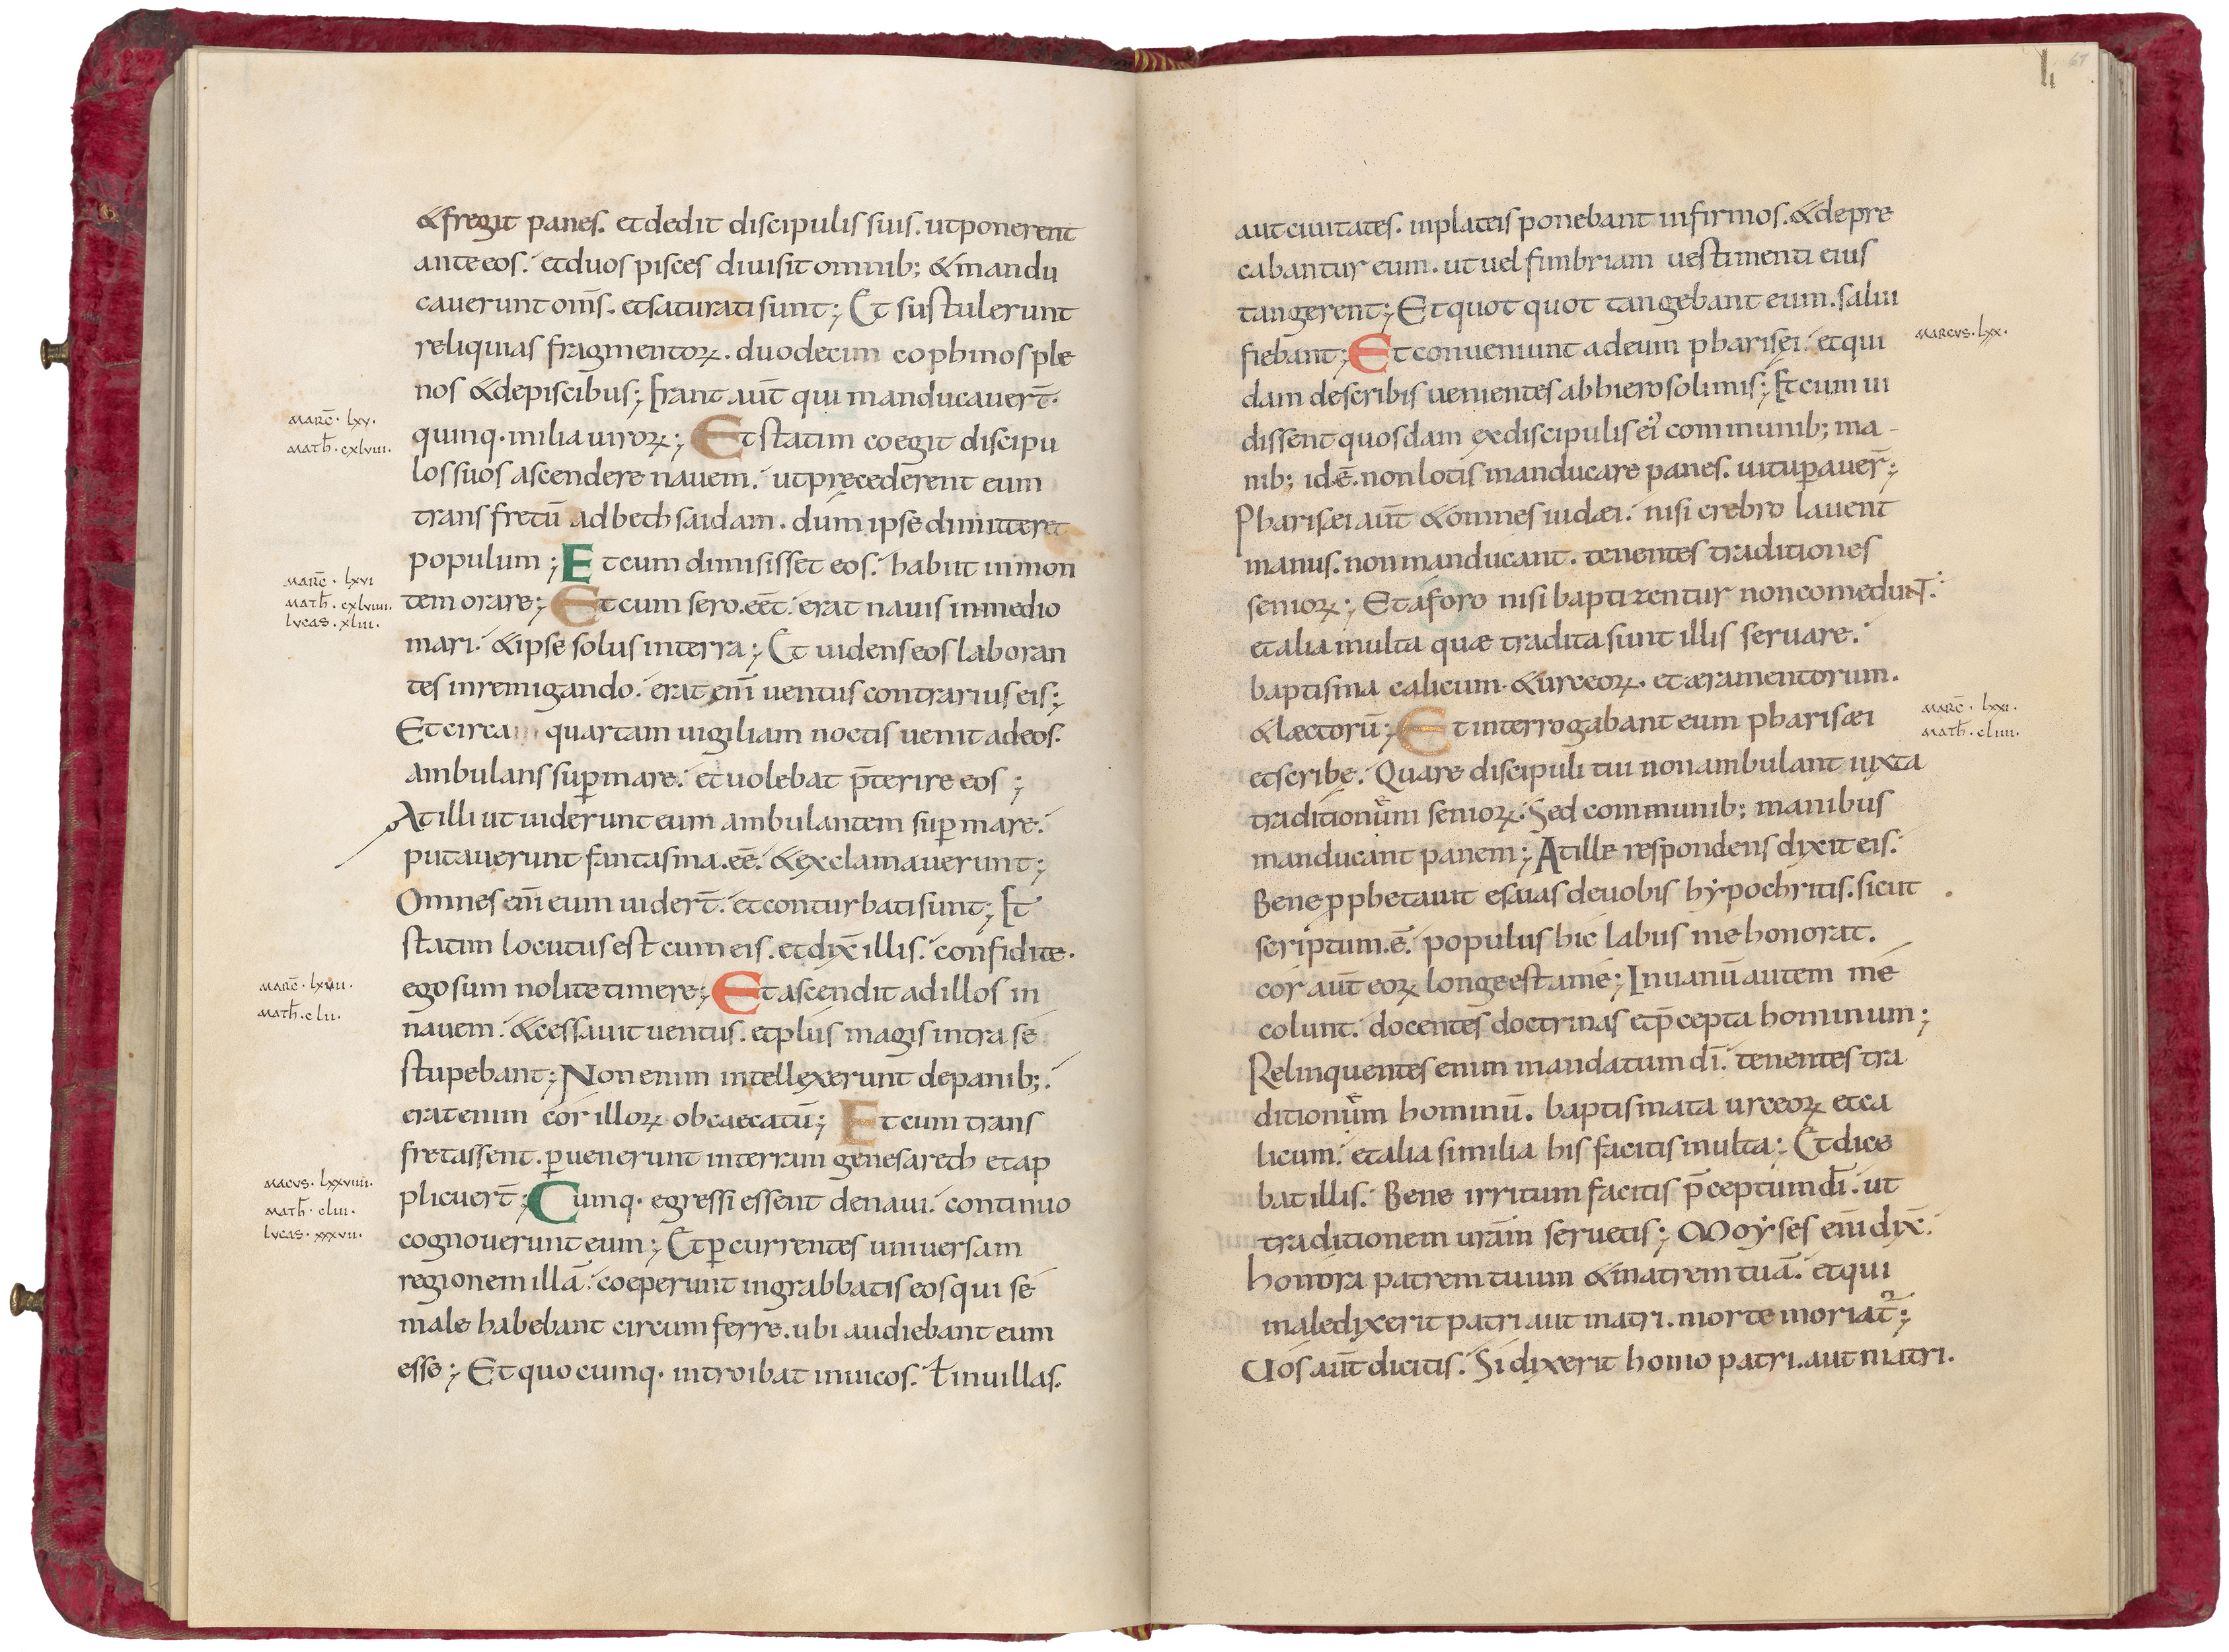 &fregit panes. etdedit discipulis suis. utponerent
anteeos. etduos pisces diuisit omnib; &mandu
cauerunt om̄s. etsaturati sunt; Et sustulerunt
reliquias fragmentoꝝ. duodecim cophinos ple
nos &depiscibus; Erant aut̄ qui manducauert̄.
marc̄. lxv.
math̄. cxlviii.
quinq. milia uiroꝝ; Et statim coegit discipu
los suos ascendere nauem. utpręcederent eum
trans fretū ad bethsaidam. dum ipse dimitteret
populum; Et cum dimisisset eos. habiit inmon
marc̄. lxvi
math̄. cxlviiii.
lvcas. xliii.
tem orare; Et cum sero.eet̄. erat nauis inmedio
mari. &ipse solus interra; Et uidens eos laboran
tes inremigando. erat eni̅ uentus contrarius eis;
Et circa quartam uigiliam noctis uenit adeos.
ambulans suꝑmare. etuolebat p̄terire eos;
At illi ut uiderunt eum ambulantem suꝑ mare.
putauerunt fantasma.eē. &exclamauerunt;
Omnes eni̅ eum uidert̄. etconturbati sunt; Et
statim locutus est cum eis. etdix̄ illis. confidite.
marc̄. lxvii.
math̄. clii.
ego sum nolite timere; Et ascendit adillos in
nauem. &cessauit uentus. etplus magis intra se
stupebant; Non enim intellexerunt depanib;.
erat enim cor illoꝝ obcaecatū; Et cum trans
fretassent. ꝑuenerunt interram genesareth etap
macvs. lxxviiii.
math̄. cliii.
lvcas. xxxvii.
plicuert̄; Cumq. egressi essent denaui. continuo
cognouerunt eum; Et ꝑcurrentes uniuersam
regionem illā. coeperunt ingrabbatis eos qui se
male habebant circumferre. ubi audiebant eum
esse; Et quocumq. introibat inuicos. ł inuillas.
li
67
aut ciuitates. inplateis ponebant infirmos. &depre
cabantur eum. ut uel fimbriam uestimenti eius
tangerent; Et quot quot tangebant eum. salui
marcvs. lxx.
fiebant; Et conueniunt adeum pharisęi. etqui
dam describis uenientes abhierosolimis; Et cum ui
dissent quosdam exdiscipulis ei' communib; ma-
nib; id.ē. non lotis manducare panes. uituꝑauer̄;
Pharisæi aut̄ &omnes iudæi. nisi crebro lauent
manus. non manducant. tenentes traditiones
senioꝝ; Et aforo nisi baptizentur non comedunt.
etalia multa quæ tradita sunt illis seruare.
baptisma calicum. &urceoꝝ. etæramentorum.
marc̄. lxxi.
math̄. cliiii.
&lectorū; Et interrogabant eum pharisæi
etscribę. Quare discipuli tui non ambulant iuxta
traditionuem senioꝝ. Sed communib; manibus
manducant panem; At ille respondens dixit eis.
Bene ꝓphetauit esaias deuobis hypochritis. sicut
scriptum.ē. populus hic labiis me honorat.
cor aut̄ eoꝝ longe est ame; Inuanū autem me
colunt. docentes doctrinas etp̄cepta hominum;
Relinquentes enim mandatum di̅. tenentes tra
ditionuem hominū. baptismata urceoꝝ etca
licum. etalia similia his facitis multa; Et dice
bat illis. Bene irritum facitis p̄ceptum di̅. ut
traditionem urām seruetis; Moyses eni̅ dix̄.
honora patrem tuum &matrem tuā. etqui
maledixerit patri aut matri. morte moriat᷑;
Uos aut̄ dicitis. Si dixerit homo patri. aut matri.